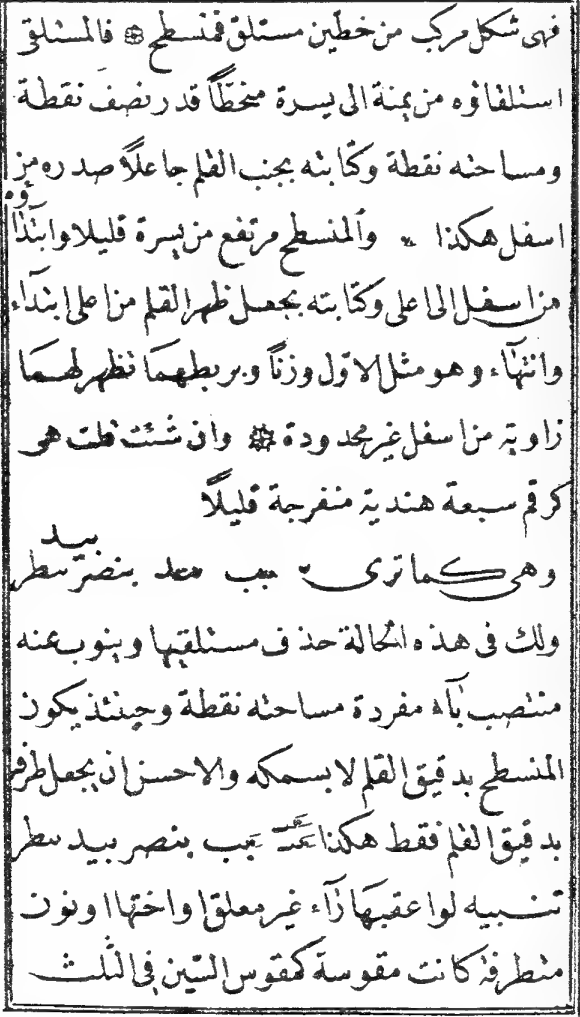 فهى شكل مركب من خطين مستلق فمنسطح ۞ فالمستلقى
استلقاؤه من يمنة الى يسرة منحطاً قدر نصف نقطة
ومساحته نقطة وكتابته بجنب القلم جاعلاً صدره من
اسفل هكذا والمنسطح مرتفع من يسرة قليلا وابتداؤه
من اسفل الى اعلى وكتابته بجعل ظهر القلم من اعلى ابتدآء
وانتهآء وهو مثل الاوّل وزناً وبربطهما تظهر لهما
زاوية من اسفل غير محدودة ۞ وان شئت قلت هى
كرقم سبعة هندية منفرجة قليلاً
وهى كما ترى بيد
ولك فى هذه الحالة حذف مستلقيها وينوب عنه
منتصب بآء مفردة مساحته نقطة وحينئذ يكون
المنسطح بدقيق القلم لا بسمكه والاحسن ان يجعل طرفه
بدقيق القلم فقط هكذا
تنبيه لو اعقبها رآء غير معلق او اختها او نون
متطرفة كانت مقوسة كمقوس السّين فى الثلث